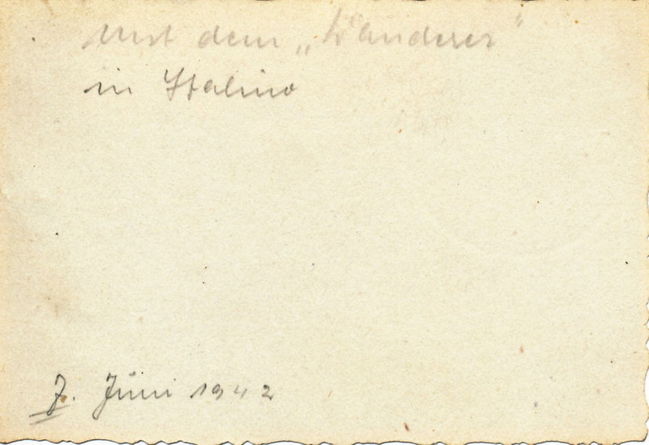 mit dem „Wanderer"
in Stalino
7. Juni 1942